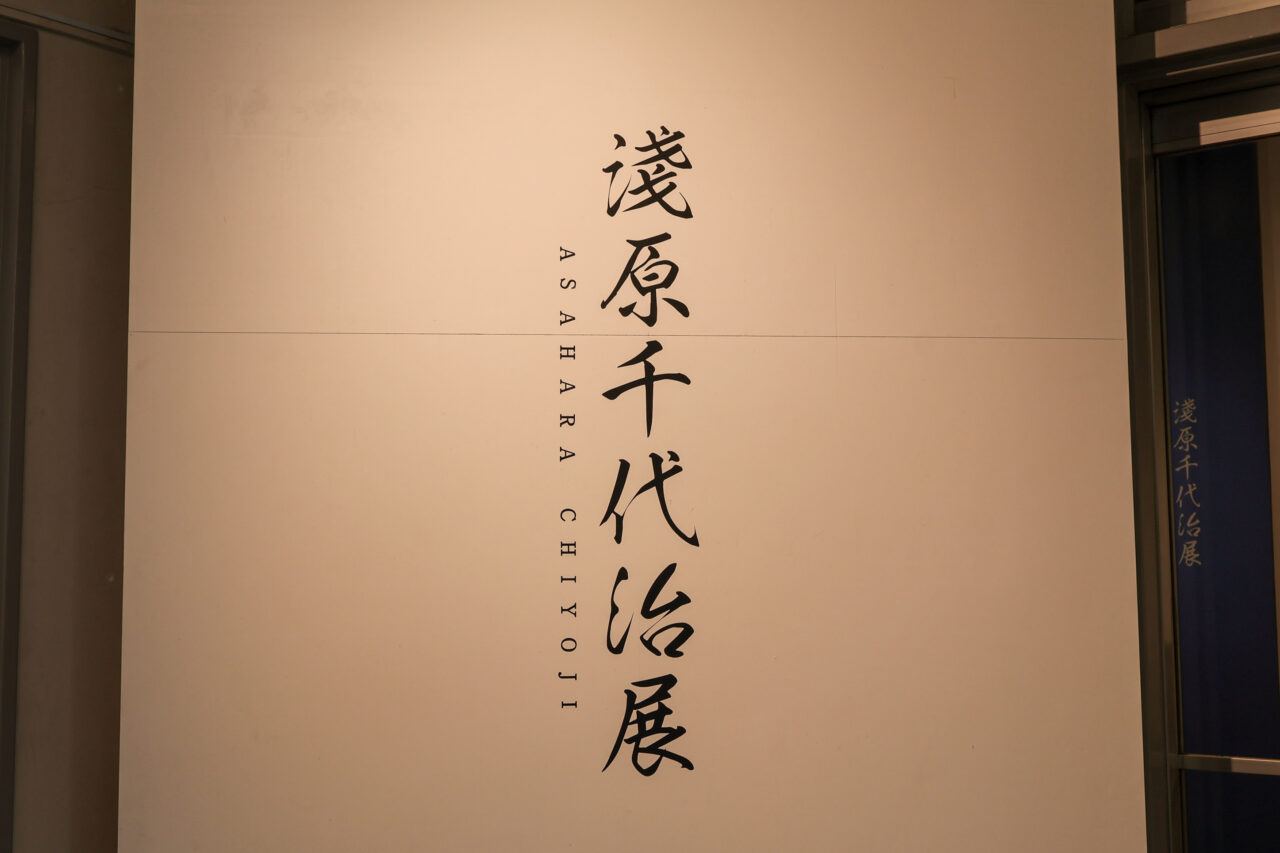 淺原千代治展
ASAHARA CHIYOJI
淺原千代治展